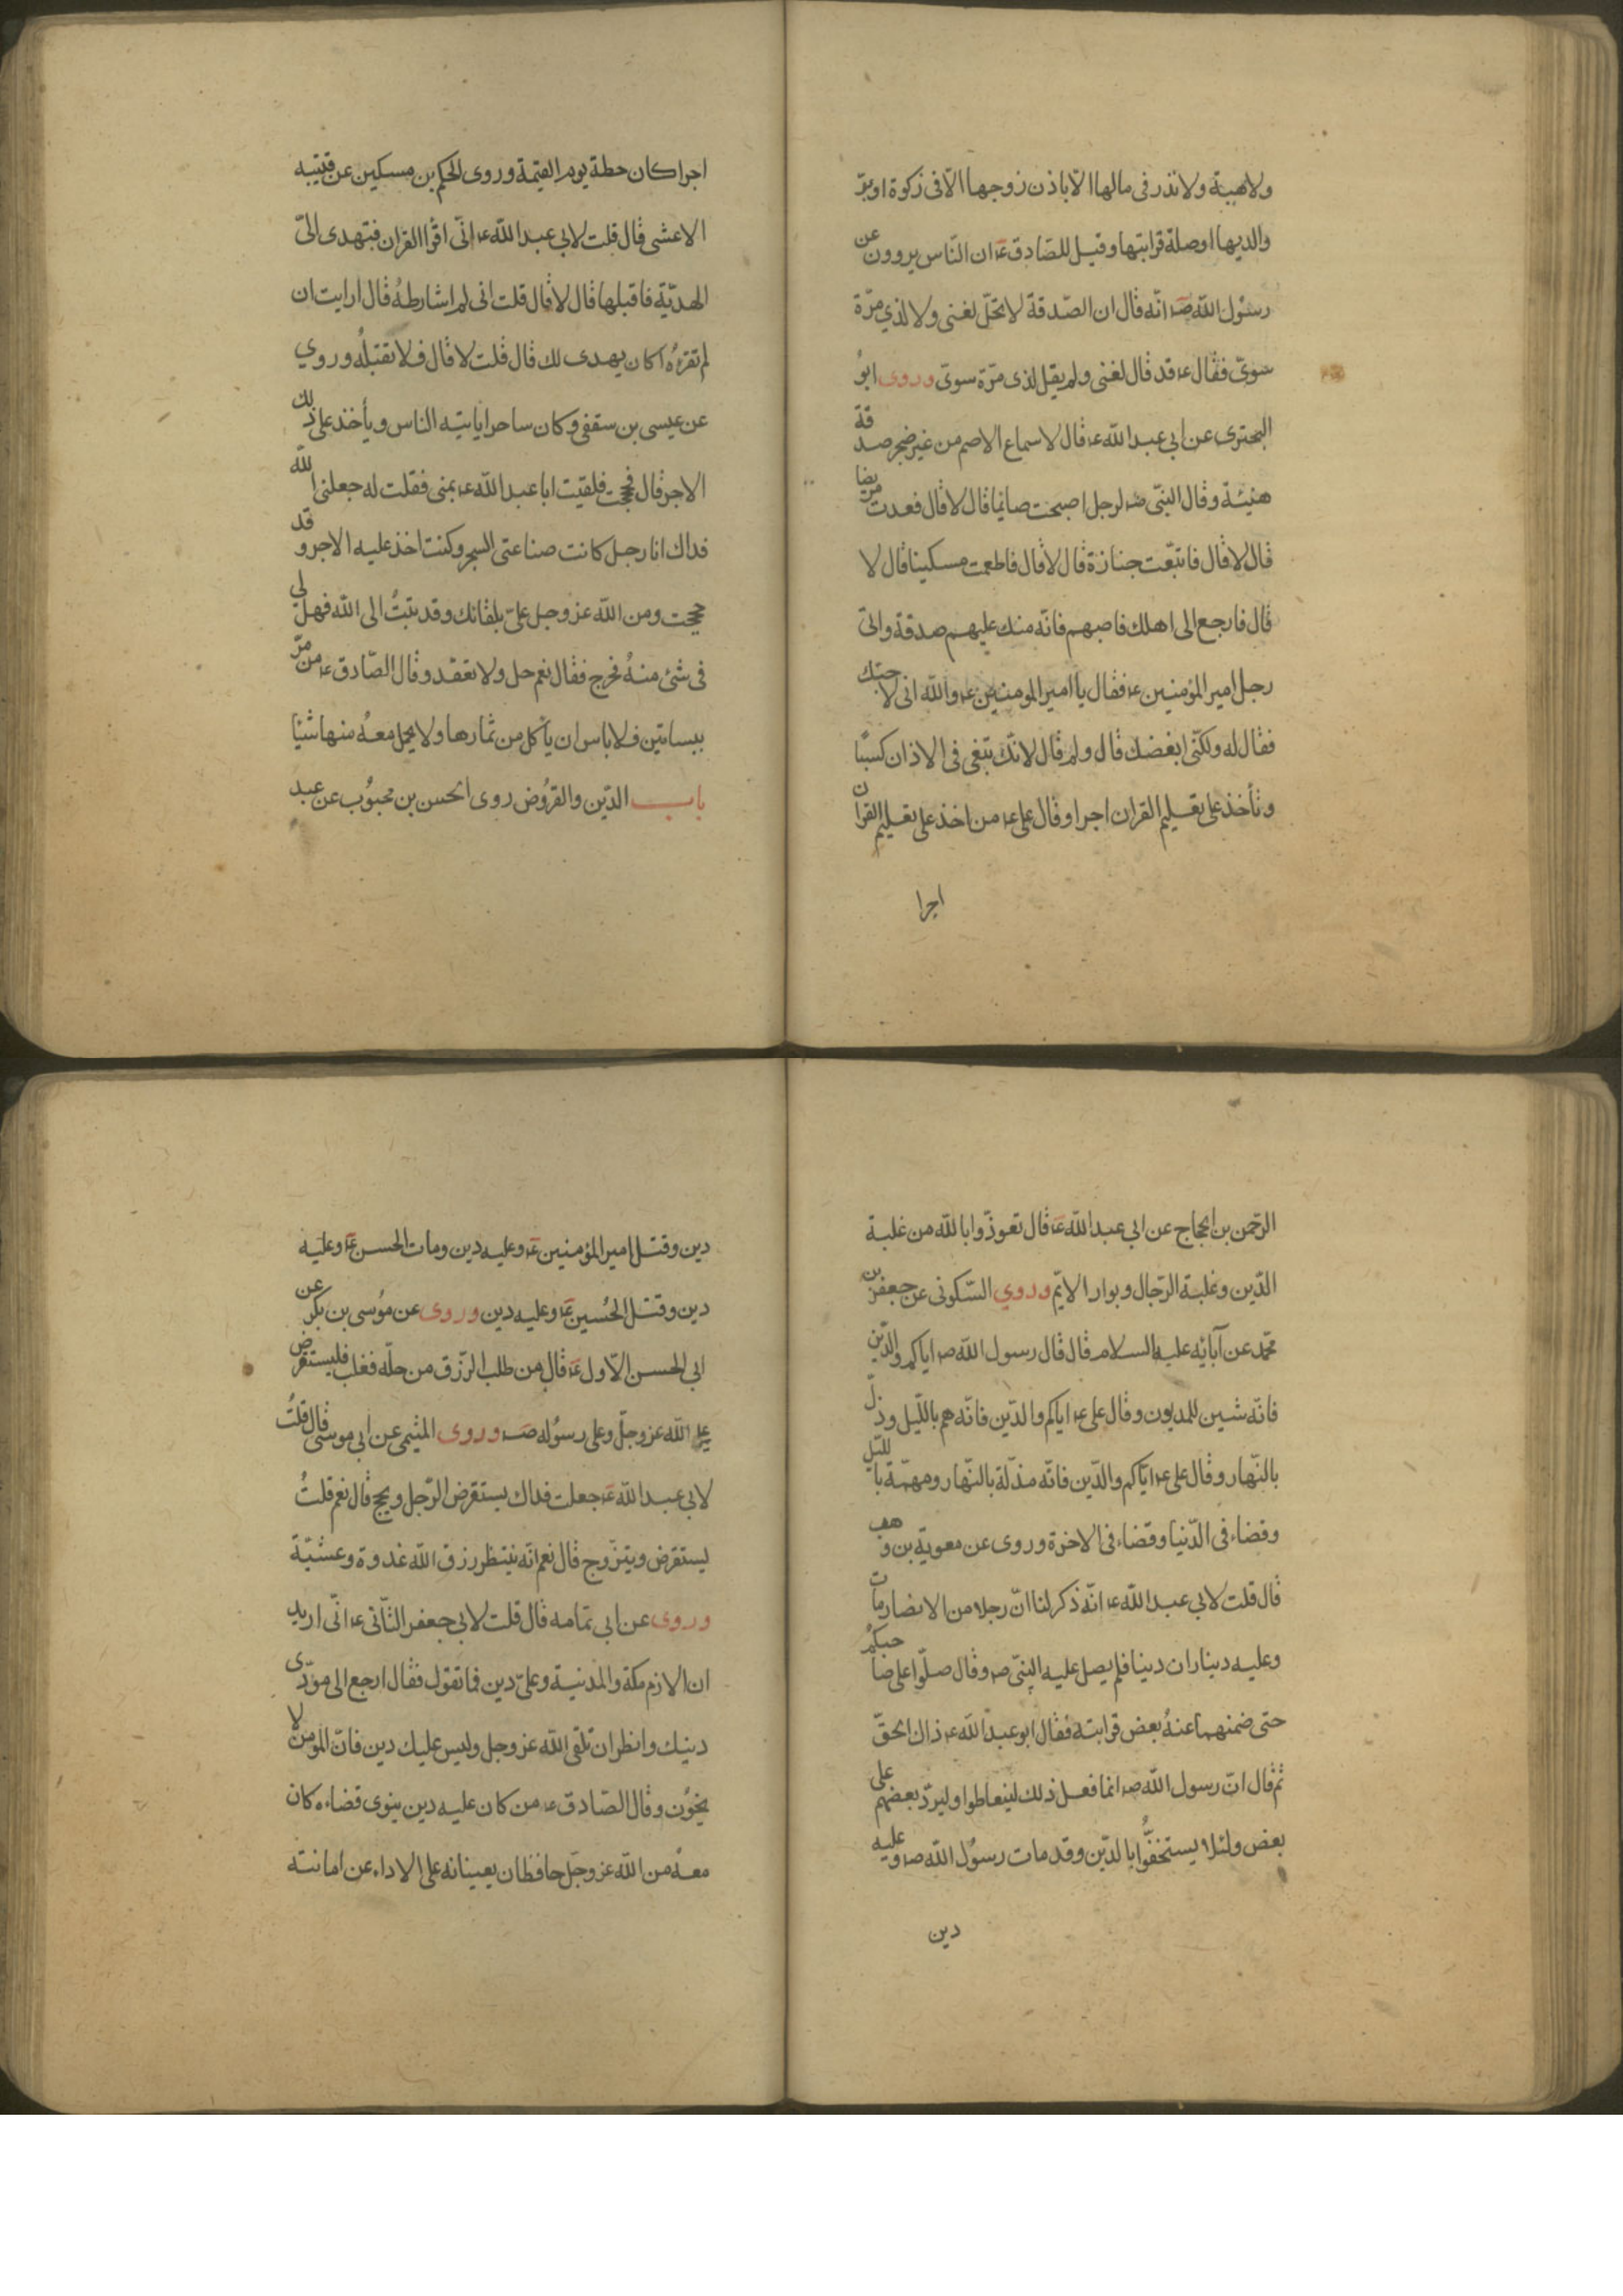 ولاهبة ولا نذر فى مالها الّا باذن زوجها الّا فى زكوة او برّ
والديها او صلة قرابتها وقيل للصّادق ع ان النّاس يروون عن
رسُول اللّه ص انّه قال ان الصّدقة لا تحلّ لغنى ولا لذي مرّة
سوىّ فقال ع قد قال لغنى ولم يقل لذى مرّة سوىّ وروى ابوُ
البخترى عن ابي عبد اللّه ع قال لاسماع الاصم من غير ضجر صدقة
هنيئة وقال النبّى ص لرجل اصبحت صائما قال لا قال فعدت مريضا
قال لا قال فاتبّعت جنازة قال لا قال فاطعمت مسكينا قال لا
قال فارجع الى اهلك فاصبهم فانّه منك عليهم صدقة واتى
رجل امير المؤمنين ع فقال يا امير المومنين ع والله انى لاحبّك
فقال له ولكنّى ابغضك قال ولم قال لانّك تبغى فى الاذان كسبًا
وتأخذ على تعليم القران اجرا وقال على ع من اخذ على تعليم القران
اجرا
اجرا كان حظة يوم القيمة وروى الحكم بن مسكين عن قتيبه
الاعشى قال قلت لابي عبد اللّه ع انّى اقرأ القران فتهدى الىّ
الهديّة فاقبلها قال لا قال قلت انى لم اشارطهُ قال ارايت ان
لم تقرءهُ اكان يهدى لك قال قلت لا قال فلا تقبلُه وروي
عن عيسى بن سقفى وكان ساحرا ياتيه الناس ويأخذ على ذلك
الاجر قال فحججت فلقيت ابا عبد اللّه ع بمنى فقلت له جعلنى اللّه
فداك انا رجل كانت صناعتى السحر وكنت اخذ عليه الاجر وقد
حججت ومن اللّه عز وجل علىّ بلقائك وقد تبتُ الى اللّه فهل لى
فى شئ منهُ مخرج فقال نعم حل ولا تعقد وقال الصّادق ع من مرّ
ببساتين فلا باس ان يأكل من ثمارها ولا يحمل معهُ منها شئيا
باب الدّين والقرُوض روى الحسن بن محبوُب عن عبد
الرّحمن بن الحجاج عن ابي عبد اللّه ع قال تعوذّوا باللّه من غلبة
الدّين وغلبة الرّجال وبوار الايّم وروي السّكونى عن جعفر بن
محمّد عن آبائه عليه السلام قال قال رسول اللّه ص اياكم والدّين
فانّه شين للمديون وقال على ع اياكم والدّين فانّه هم باللّيل وذلّ
بالنّهار وقال على ع ايّاكم والدّين فانّه مذلّة بالنّهار ومهمّة باللّيل
وقضاء فى الدّنيا وقضاء فى الاخرة وروى عن معوية بن وهب
قال قلت لابي عبد اللّه ع انّه ذكر لنا انّ رجلا من الانصار مات
وعليه ديناران دينا فلم يصل عليه النبّى ص وقال صلّوا على صاحبكم
حتى ضمنهما عنهُ بعض قرابته فقال ابو عبد اللّه ع ذاك الحقّ
ثم قال انّ رسول اللّه ص انما فعل ذلك ليتعاطوا وليردّ بعضهم على
بعض ولئلا يستخفّوُا بالدّين وقد مات رسوُل اللّه ص وعليه
دين
دين وقتل امير المؤمنين ع وعليه دين ومات الحسن ع وعليه
دين وقتل الحُسين ع وعليه دين وروى عن موُسى بن بكر عن
ابي الحسن الاّول ع قال من طلب الرّزق من حلّه فغلب فليستقرض
على اللّه عز وجلّ وعلى رسوُله ص وروى الميثمى عن ابي موسى قال قلتُ
لابي عبد اللّه ع جعلت فداك يستقرض الرّجل ويحج قال نعم قلتُ
يستقرض ويتزّوج قال نعم انّه ينتظر رزق اللّه غدوة وعشيّة
وروى عن ابي تمامه قال قلت لابي جعفر الثّانى ع انّى اريد
ان الازم مكة والمدنية وعلىّ دين فما تقول فقال ارجع الى مؤدّى
دينك وانظر ان تلقى اللّه عز وجل وليس عليك دين فانّ المؤمن لا
يخوُن وقال الصّادق ع من كان عليه دين ينوى قضاءه كان
معهُ من اللّه عز وجَل حافظان يعينانه على الاداء عن امانته